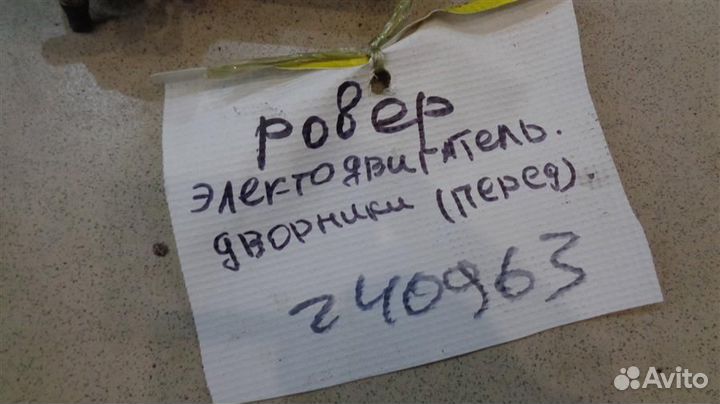 ровер
электодвигатель.
дворники (перед).
240963
Avito